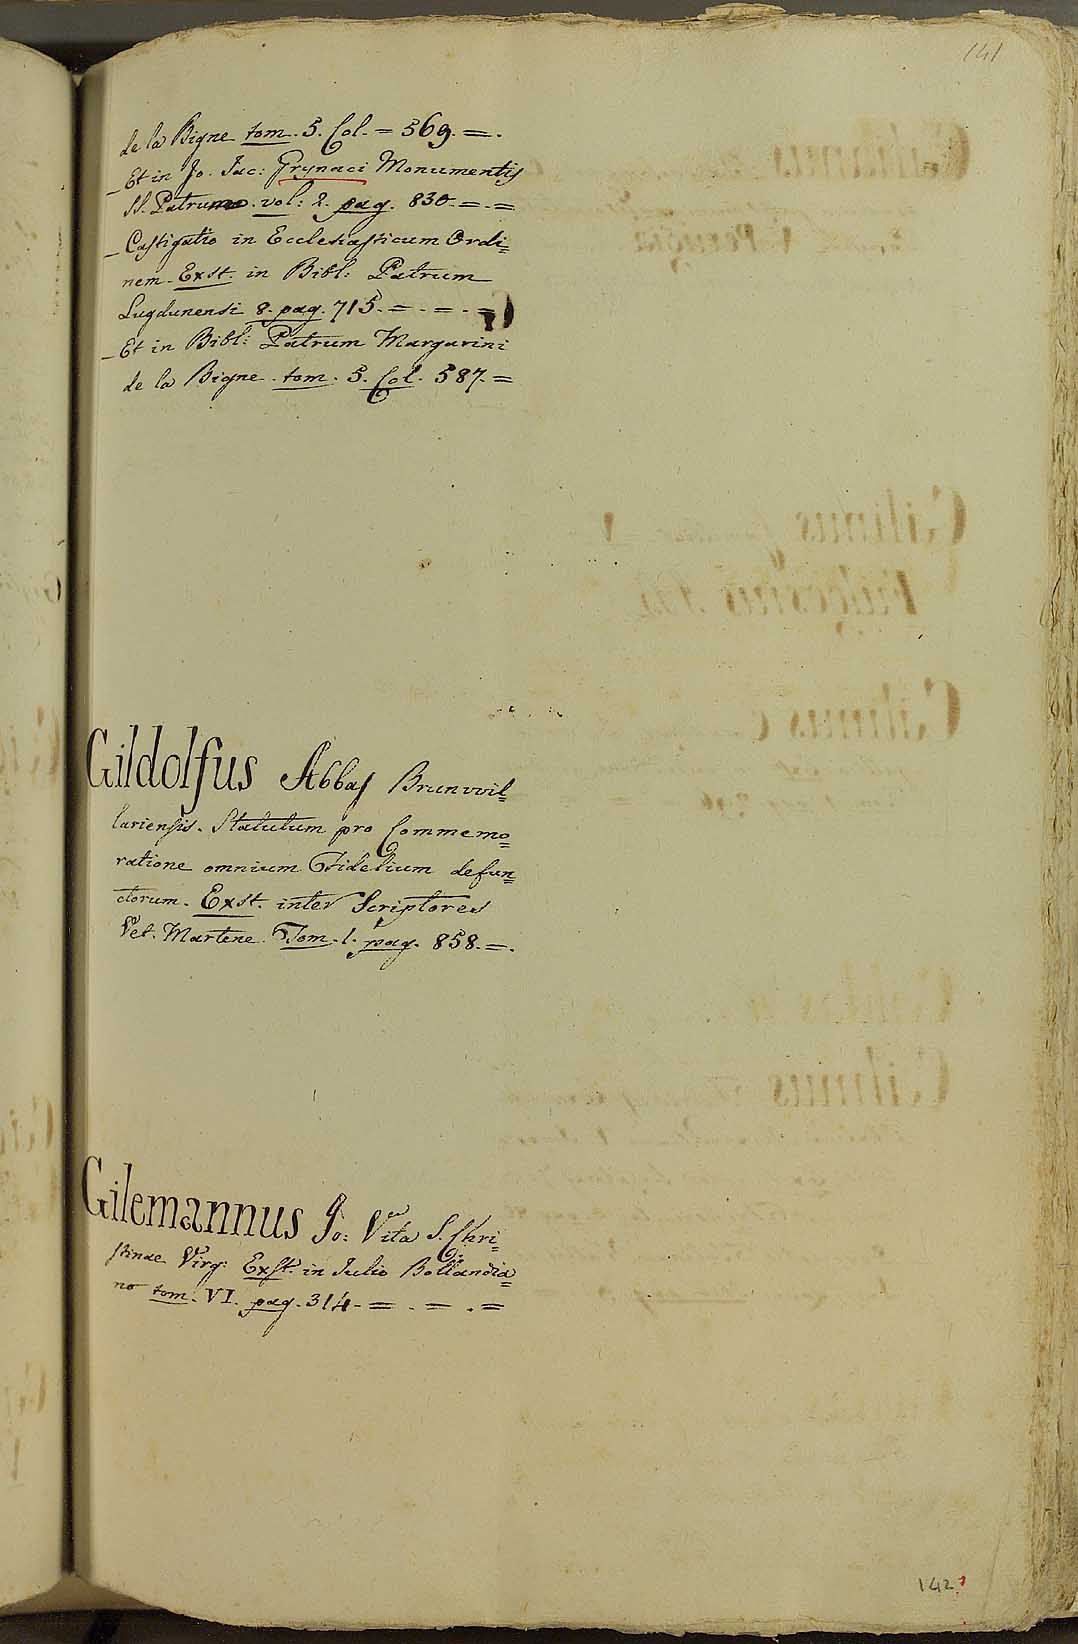 141
de la Bigne tom. 5. Col. = 569. =.
_ Et in Jo. Jac: Grynaei Monumentis
SS. Patrum. vol: 2. pag. 830. =. =
_ Castigatio in Ecclesiasticum Ordi=
nem. Exst. in Bibl: Patrum
Lugdunensi 8. pag. 715. =. =. =
_ Et in Bibl: Patrum Margarini
de la Bigne. tom. 5. Col. 587. =
Gildolfus Abbas Brunvvil=
lariensis. Statutum pro Commemo=
ratione omnium Fidelium defun=
ctorum. Exst. inter Scriptores
Vet. Martene. Tom. 1. pag. 858. =.
Gilemannus Jo: Vita S. Chri=
stinae Virg: Exst. in Julio Bollandia=
no tom. VI. pag. 314. =. =. =
142